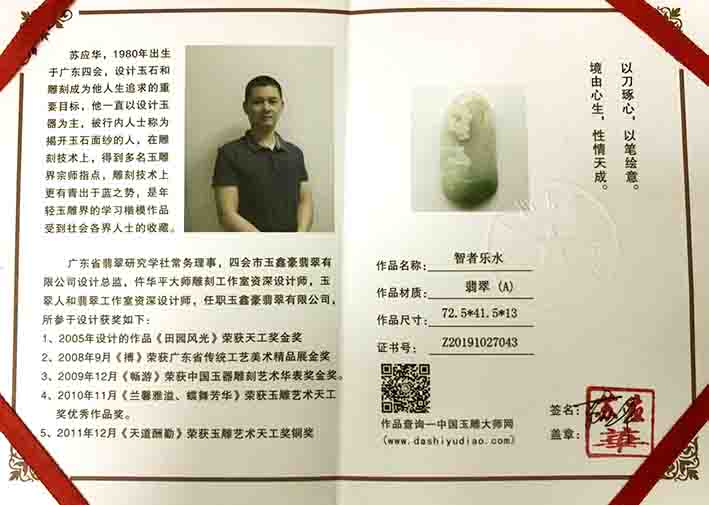 苏应华，1980年出生
于广东四会，设计玉石和
雕刻成为他人生追求的重
要目标，他一直以设计玉
器为主，被行内人士称为
揭开玉石面纱的人，在雕
刻技术上，得到多名玉雕
界宗师指点，雕刻技术上
更有青出于蓝之势，是年
轻玉雕界的学习楷模作品
受到社会各界人士的收藏。
广东省翡翠研究学社常务理事，四会市玉鑫豪翡翠有
限公司设计总监，仵华平大师雕刻工作室资深设计师，玉
翠人和翡翠工作室资深设计师，任职玉鑫豪翡翠有限公司，
所参于设计获奖如下：
1、2005年设计的作品《田园风光》荣获天工奖金奖
2、2008年9月《搏》荣获广东省传统工艺美术精品展金奖
3、2009年12月《畅游》荣获中国玉器雕刻艺术华表奖金奖。
4、2010年11月《兰馨雅溢、蝶舞芳华》荣获玉雕艺术天工
奖优秀作品奖。
5、2011年12月《天道酬勤》荣获玉雕艺术天工奖铜奖
以刀琢心，以笔绘意。
境由心生，性情天成。
作品名称： 智者乐水
作品材质： 翡翠（A）
作品尺寸： 72.5*41.5*13
证书号： Z20191027043
作品查询—中国玉雕大师网
(www.dashiyudiao.com)
签名：
盖章：